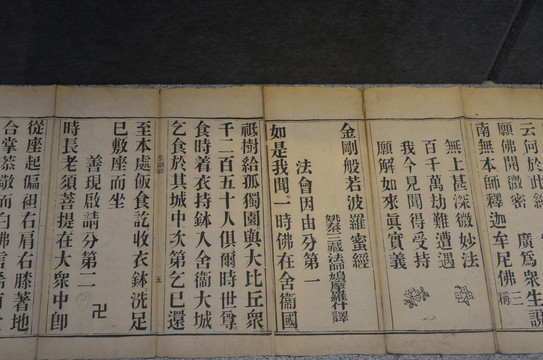 云何於此經
願佛開微密 廣爲衆生說
南無本師釋迦牟尼佛 三稱
無上甚深微妙法
百千萬劫難遭遇
我今見聞得受持
願解如來眞實義
金剛般若波羅蜜經
姚秦三藏法師鳩摩羅什譯
法會因由分第一
如是我聞一時佛在舍衞國
祗樹給孤獨園與大比丘衆
千二百五十人俱爾時世尊
食時着衣持鉢入舍衞大城
乞食於其城中次第乞巳還
至本處飯食訖收衣鉢洗足
巳敷座而坐
善現啟請分第二 卍
時長老須菩提在大衆中卽
從座起偏袒右肩右膝著地
合掌恭敬而白佛言